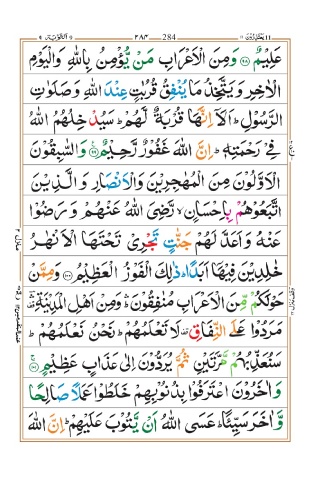 يعتذرون ١١ ٢٨٤ 284 التوبة ٩
عَلِيْمٌ ۝٩٨ وَمِنَ الْاَعْرَابِ مَنْ يُّؤْمِنُ بِاللّٰهِ وَالْيَوْمِ
الْاٰخِرِ وَيَتَّخِذُ مَا يُنْفِقُ قُرُبٰتٍ عِنْدَ اللّٰهِ وَصَلَوٰتِ
الرَّسُوْلِ ؕ اَلَاۤ اِنَّهَا قُرْبَةٌ لَّهُمْ ؕ سَيُدْخِلُهُمُ اللّٰهُ
فِيْ رَحْمَتِهٖ ؕ اِنَّ اللّٰهَ غَفُوْرٌ رَّحِيْمٌ ۝٩٩ وَالسّٰبِقُوْنَ
الْاَوَّلُوْنَ مِنَ الْمُهٰجِرِيْنَ وَالْاَنْصَارِ وَالَّذِيْنَ
اتَّبَعُوْهُمْ بِاِحْسَانٍ ۙ رَّضِيَ اللّٰهُ عَنْهُمْ وَرَضُوْا
عَنْهُ وَاَعَدَّ لَهُمْ جَنّٰتٍ تَجْرِيْ تَحْتَهَا الْاَنْهٰرُ
خٰلِدِيْنَ فِيْهَاۤ اَبَدًا ؕ ذٰلِكَ الْفَوْزُ الْعَظِيْمُ ۝١٠٠ وَمِمَّنْ
حَوْلَكُمْ مِّنَ الْاَعْرَابِ مُنٰفِقُوْنَ ۛؕ وَمِنْ اَهْلِ الْمَدِيْنَةِ ۛؔ
مَرَدُوْا عَلَى النِّفَاقِ ۫ لَا تَعْلَمُهُمْ ؕ نَحْنُ نَعْلَمُهُمْ ؕ
سَنُعَذِّبُهُمْ مَّرَّتَيْنِ ثُمَّ يُرَدُّوْنَ اِلٰى عَذَابٍ عَظِيْمٍ ۝١٠١
وَاٰخَرُوْنَ اعْتَرَفُوْا بِذُنُوْبِهِمْ خَلَطُوْا عَمَلًا صَالِحًا
وَّاٰخَرَ سَيِّئًا ؕ عَسَى اللّٰهُ اَنْ يَّتُوْبَ عَلَيْهِمْ ؕ اِنَّ اللّٰهَ